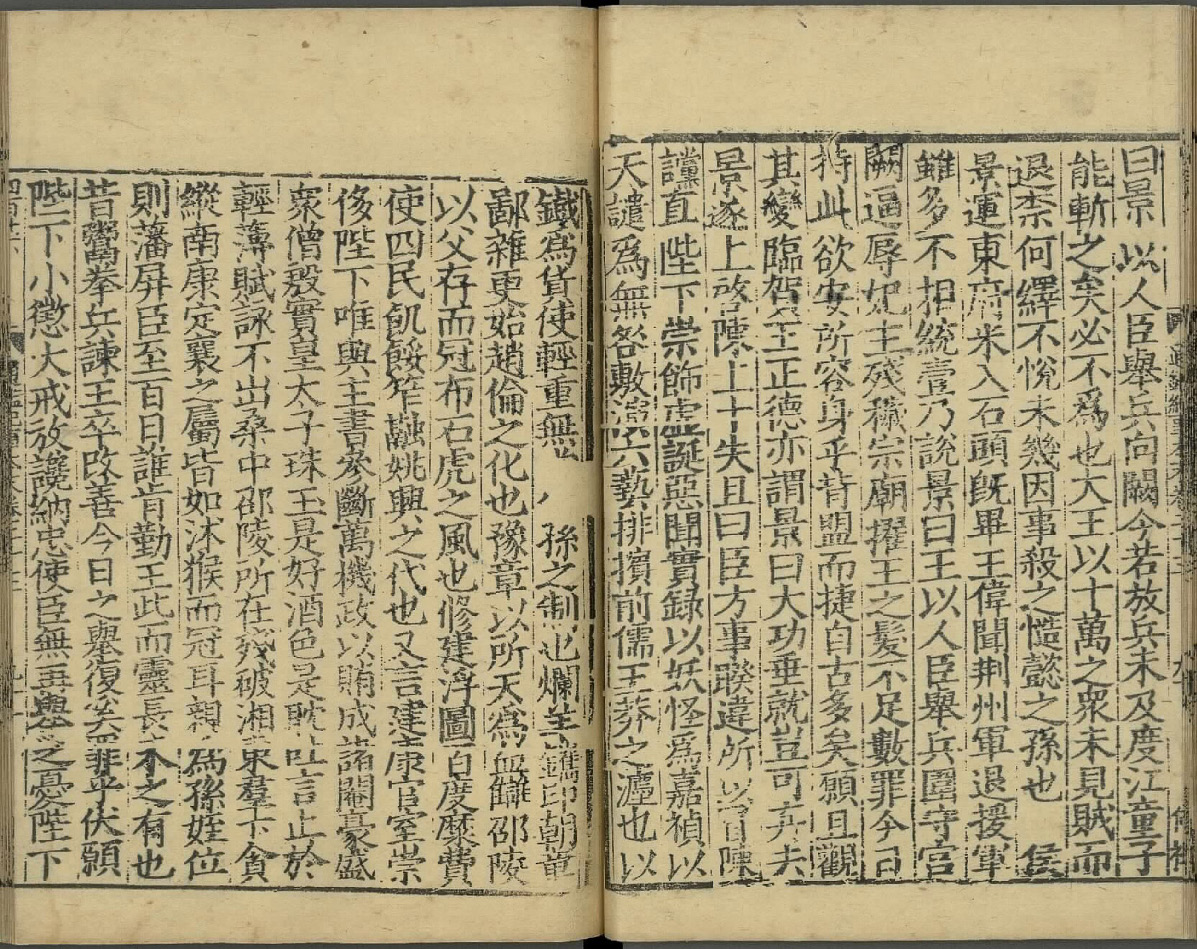 曰景以人臣舉兵向闕今若放兵未及度江童子
能斬之矣必不為也大王以十萬之衆未見賊而
退柰何繹不悅未幾因事殺之慥懿之孫也侯
景運東府米入石頭旣畢王偉聞荆州軍退援軍
雖多不相統壹乃說景曰王以人臣舉兵圍守宮
闕逼辱妃主殘穢宗廟擢王之髮不足數罪今日
持此欲安所容身乎背盟而捷自古多矣願且觀
其變臨賀王正德亦謂景曰大功垂就豈可弃去
景遂上啓陳上十失且曰臣方事睽違所以冒陳
讜直陛下崇飾虛誕惡聞實録以妖怪為嘉禎以
天譴為無咎敷演六藝排擯前儒王莽之灋也以
鐵為貨使輕重無孫之制也爛羊鐫印朝章
鄙雜更始趙倫之化也豫章以所天為血讎邵陵
以父存而冠布石虎之風也修建浮圖百度糜費
使四民飢餒笮融姚興之代也又言建康宮室崇
侈陛下唯與主書參斷萬機政以賄成諸閹豪盛
衆僧殷實皇太子珠玉是好酒色是耽吐言止於
輕薄賦詠不出桑中邵陵所在殘破湘東羣下貪
縱南康定襄之屬皆如沐猴而冠耳親為孫姪位
則藩屏臣至百日誰肯勤王此而靈長未之有也
昔鬻拳兵諫王卒改善今日之舉復奚罪乎伏願
陛下小懲大戒放讒納忠使臣無再舉之憂陛下